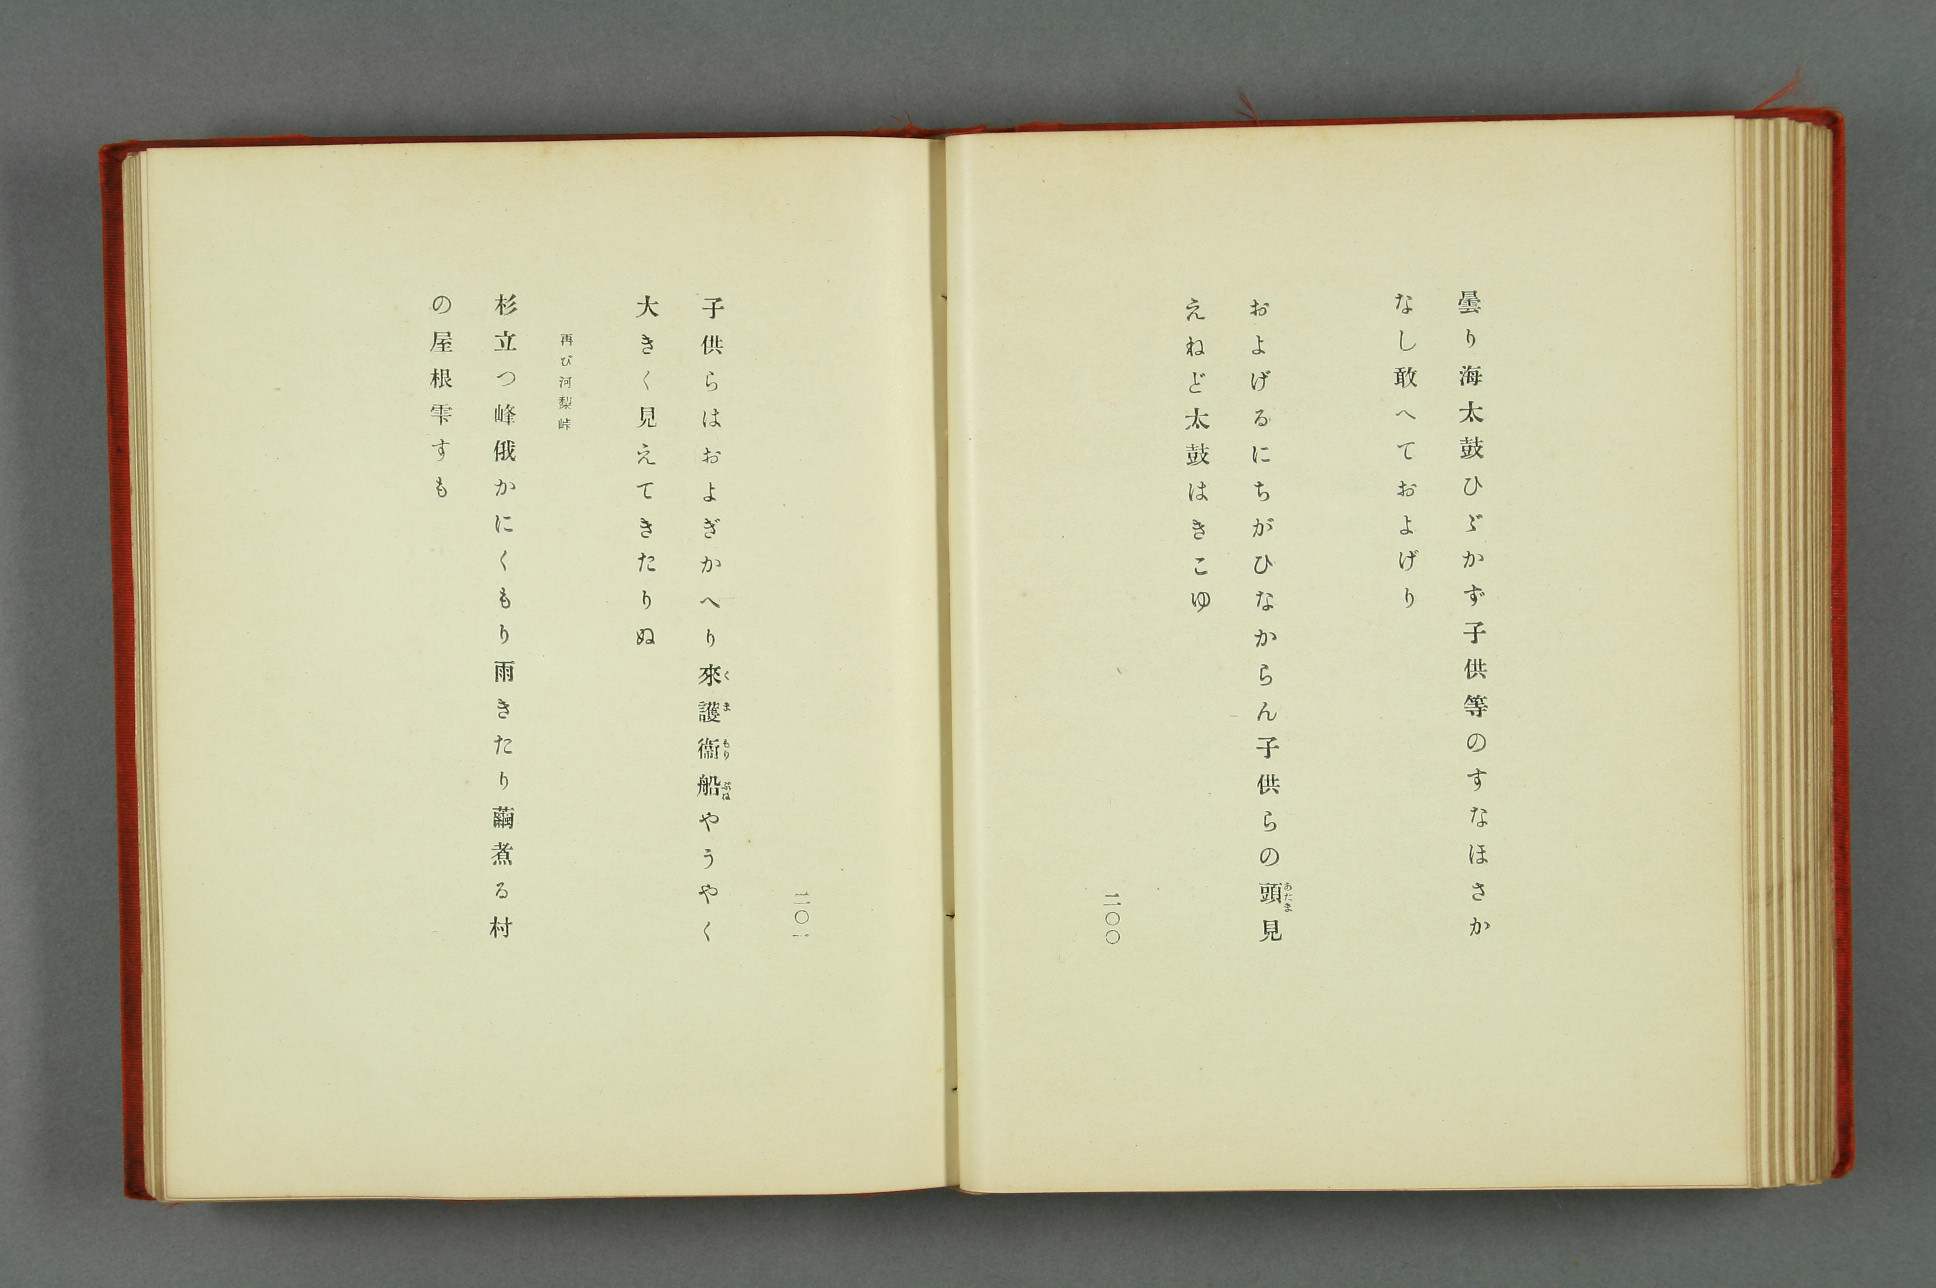 曇り海太鼓ひゞかず子供等のすなほさか
なし敢へておよげり
およげるにちがひなからん子供らの頭見
あたま
えねど太鼓はきこゆ
二〇〇
二〇一
子供らはおよぎかへり來護衞船やうやく
くまもりぶね
大きく見えてきたりぬ
再び河梨峠
杉立つ峰俄かにくもり雨きたり繭煮る村
の屋根雫すも